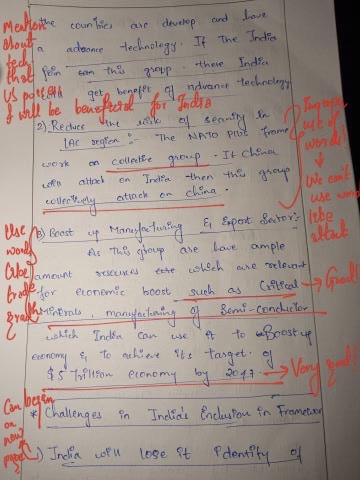 Mention
about
tech
that
US possess
& will be beneficial for India
the countries are develop and have
a advance technology. If the India
join this group. there India
will get benefit of advance technology
2) Reduce the risk of security in
LAC region :- The NATO Plus frame
work on collective group. If China
will attack on India then this group
collectively attack on china.
Improper
use of
words!
We can't
use word
like
attack
3) Boost up Manufacturing & Export Sector:
As this group are have ample
amount resources which are relevant
for economic boost such as Critical
Minerals, manufacturing of Semi-conductor
which India can use it to Boost up
economy & to achieve its target of
$5 Trillion economy by 2047.
Use
words
like
trade
Good!
Very good!
Can begin
on
new
page
* Challenges in India's Inclusion in Framework
1) India will lose it identity of